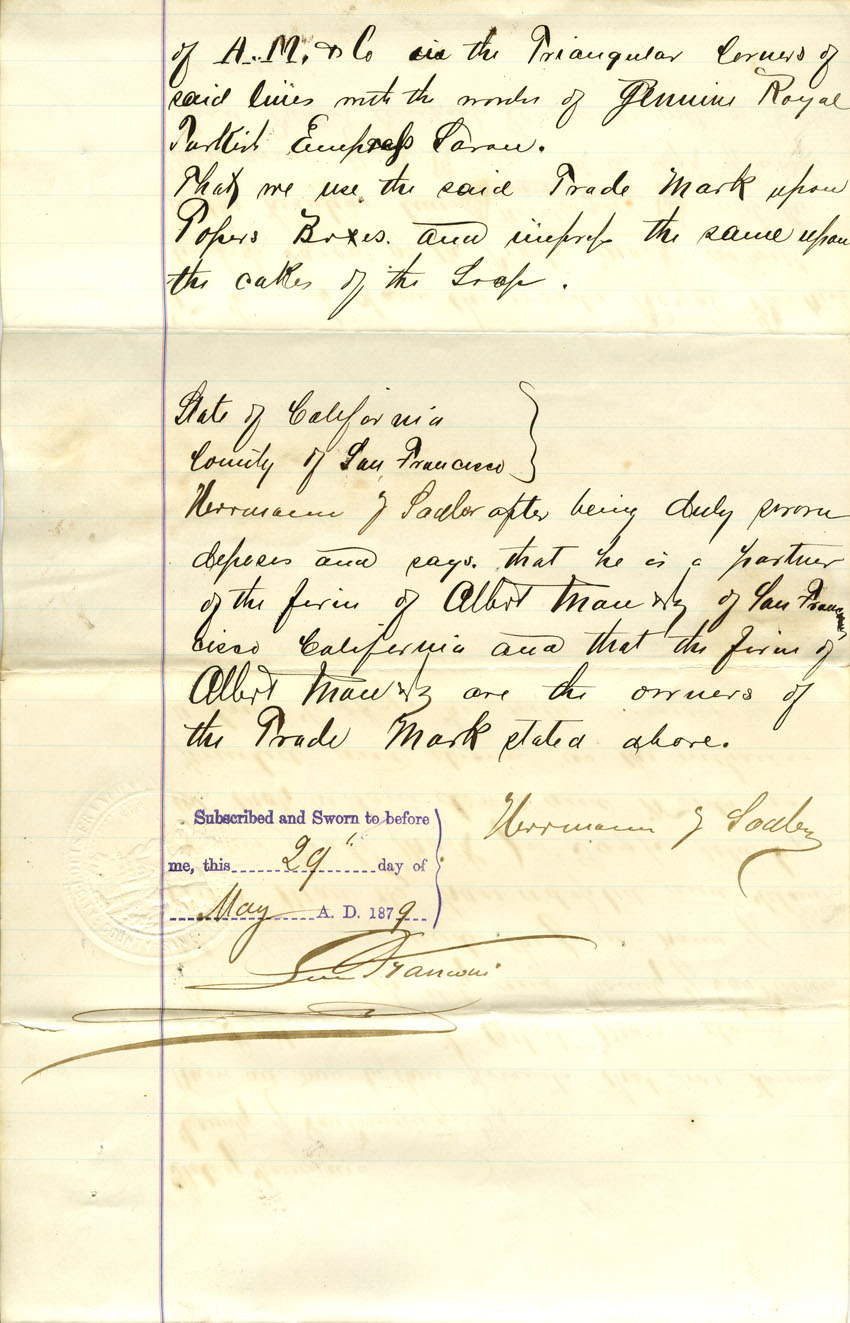 of A. M. & Co in the Triangular Corners of
said lines with the words of Genuine Royal
Turkish Empress Savon.
That we use the said Trade Mark upon
Papers Boxes. and impress the same upon
the cakes of the Soap.
State of California
County of San Francisco
Herrmann J Sadler after being duly sworn
deposes and says. that he is a partner
of the firm of Albert Mau & Co of San Fran
cisco California and that the firm of
Albert Mau & Co are the owners of
the Trade Mark stated above.
Subscribed and Sworn to before
me, this 29" day of
May A. D. 1879
Herrmann J Sadler